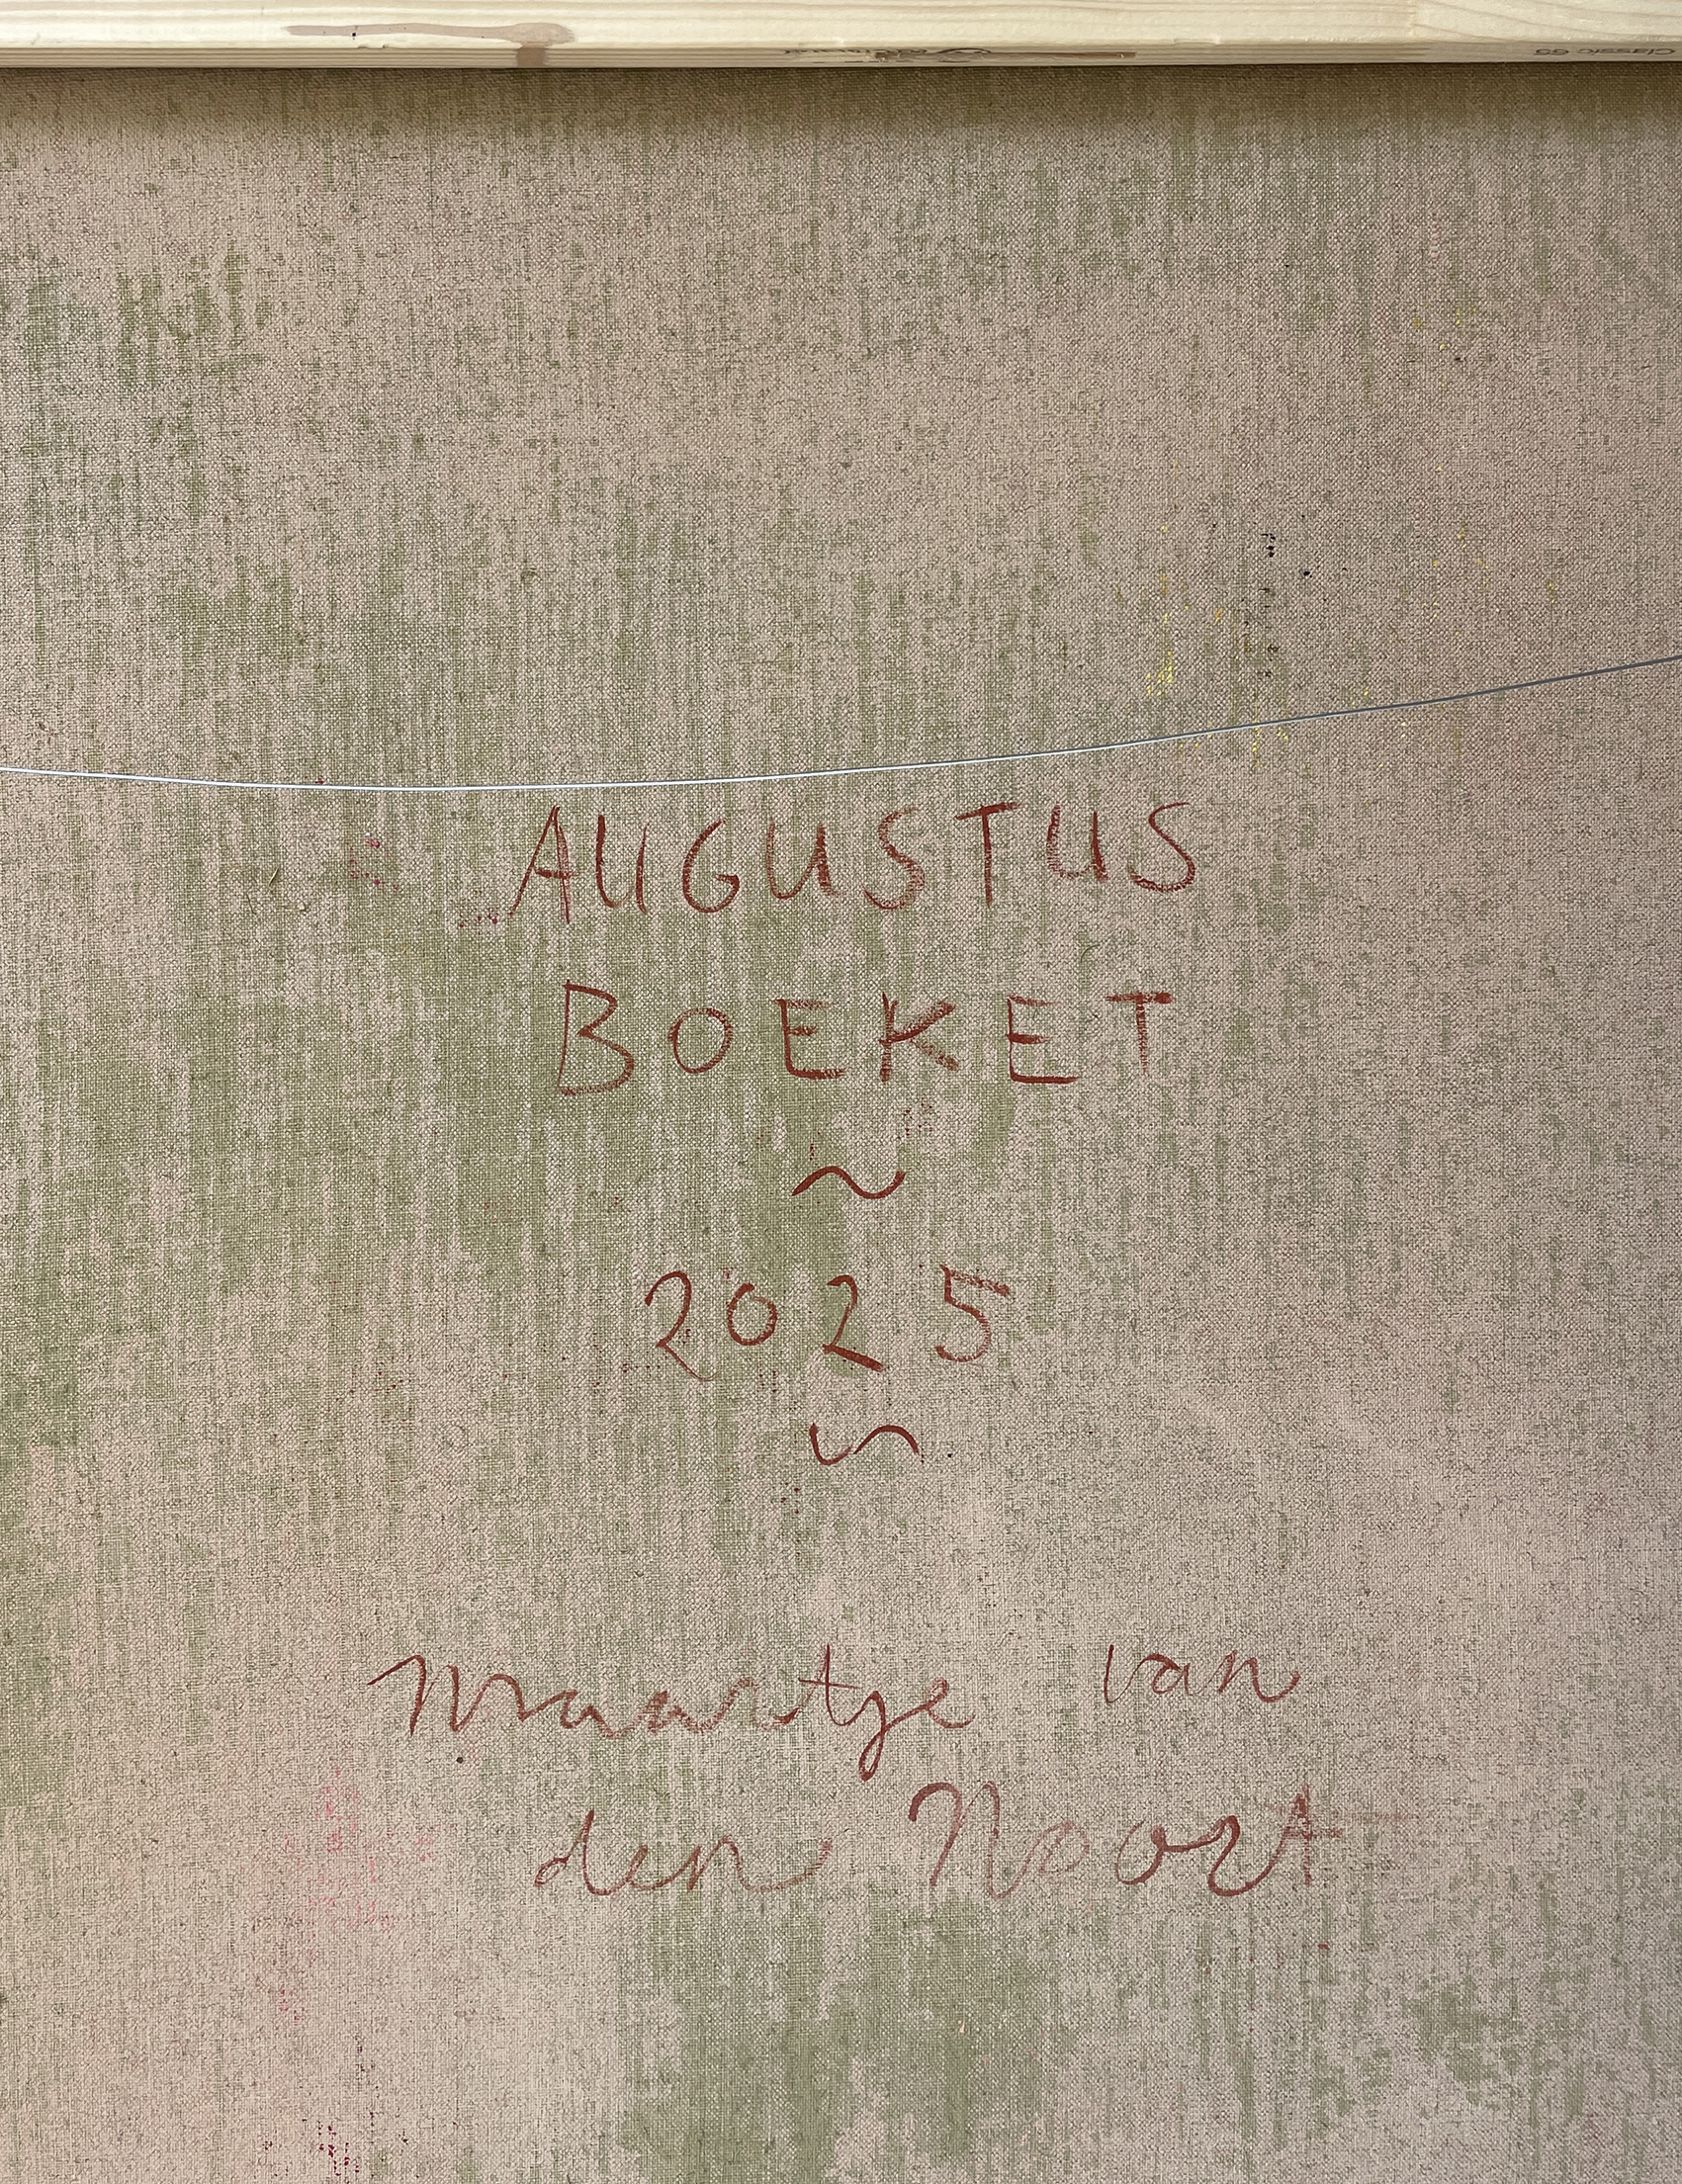 AUGUSTUS
BOEKET
~
2025
~
Maartje van
den Noort